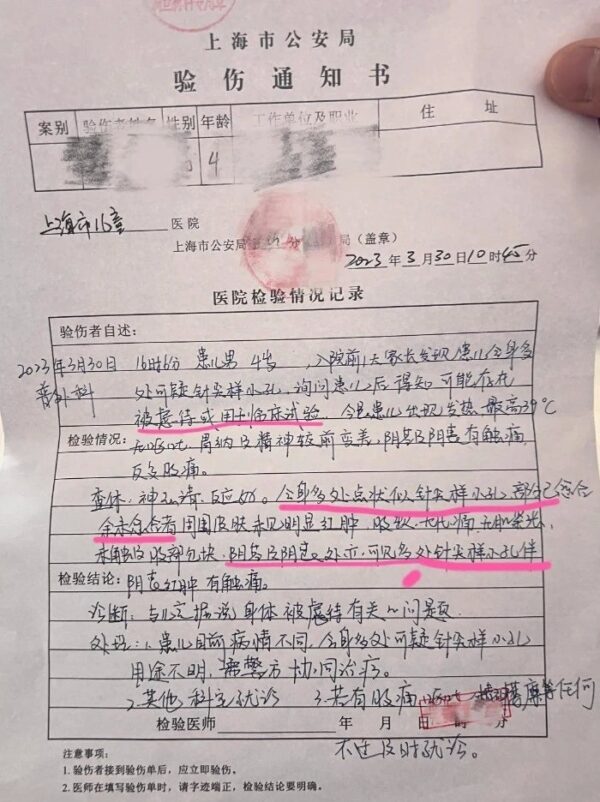 上海市公安局
验伤通知书
案别 验伤者姓名 性别 年龄 工作单位及职业 住址
4
上海市儿童 医院
上海市公安局 分 局(盖章)
2023年3月30日10时45分
医院检验情况记录
验伤者自述:
2023年3月30日 16时6分 患儿男 4岁 ,入院前1天家长发现患儿全身多
普外科 处可疑针尖样小孔,询问患儿后得知可能存在
被虐待或用刑 试验. 今患儿出现发热 最高39℃
检验情况: 无呕吐,胃纳及精神较前变差,阴茎及阴囊有触痛,
反复腹痛。
查体:神志清,反应好。全身多处点状似针尖样小孔,部分已愈合
余未愈合者周围皮肤未见明显红肿 腹软,无压痛,无肌紧张,
未触及腹部包块,阴茎及阴囊处亦可见多处针尖样小孔伴
检验结论: 阴囊红肿 有触痛。
诊断:与 身体被虐待有关的问题
处理:1.患儿目前病情不同,全身多处可疑针尖样小孔
用途不明,需警方协同治疗。
2.其他科室就诊 3.若有腹痛 等任何
检验医师 年 月 日 时 分
不适及时就诊。
注意事项:
1. 验伤者接到验伤单后,应立即验伤。
2. 医师在填写验伤单时,请字迹端正,检验结论要明确。